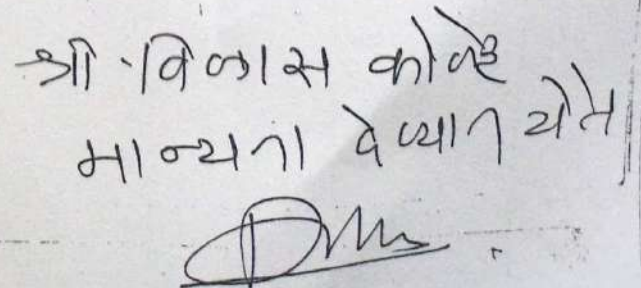 श्री. विलास कोल्हे
मान्यता देण्यात येते